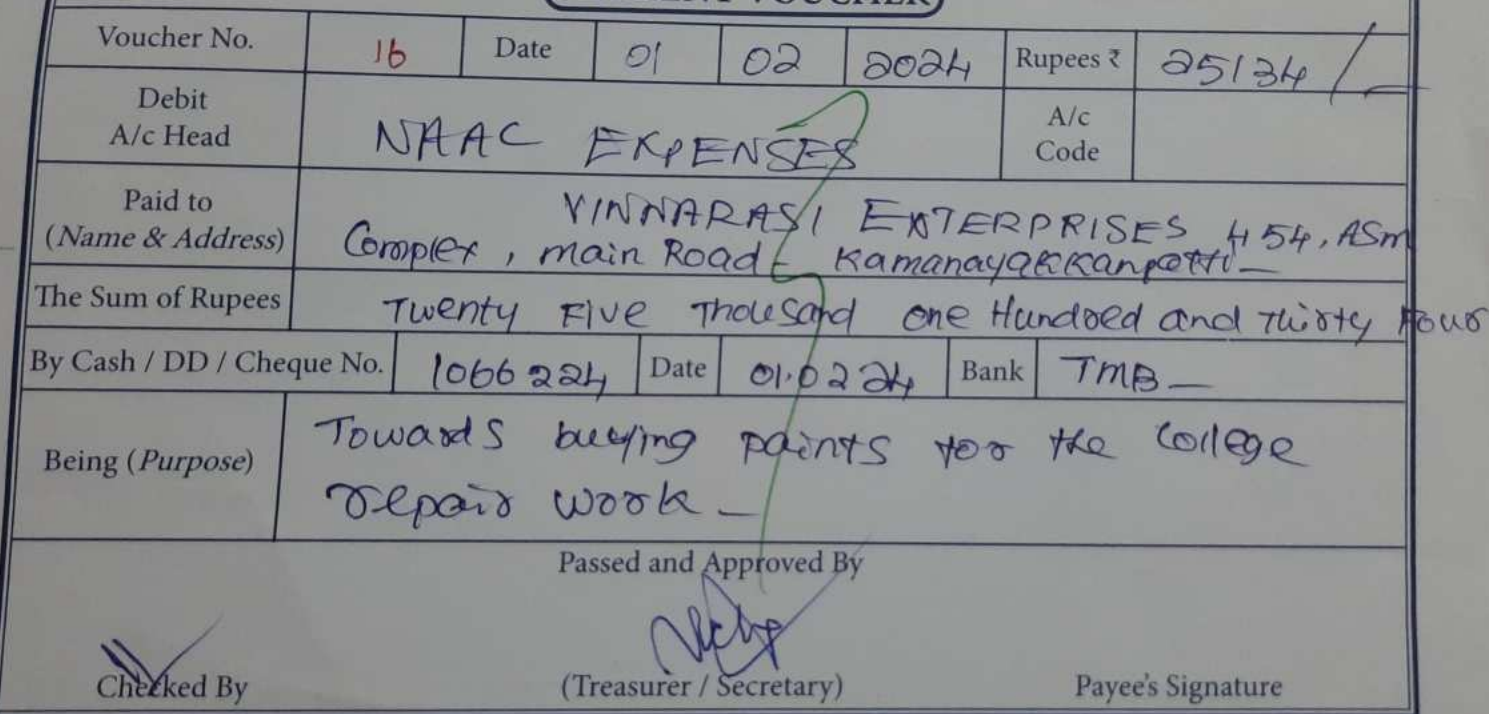 VOUCHER
Voucher No. 16 Date 01 02 2024 Rupees ₹ 25134/-
Debit
A/c Head NAAC EXPENSES A/c
Code
Paid to
(Name & Address) VINNARASI ENTERPRISES 454, ASM
Complex, main Road - Kamanayakkanpatti-
The Sum of Rupees Twenty Five Thousand one Hundred and Thirty Four
By Cash / DD / Cheque No. 1066224 Date 01.02 24 Bank TMB-
Being (Purpose) Towards buying paints for the College
repair work-
Passed and Approved By
Checked By (Treasurer / Secretary) Payee's Signature